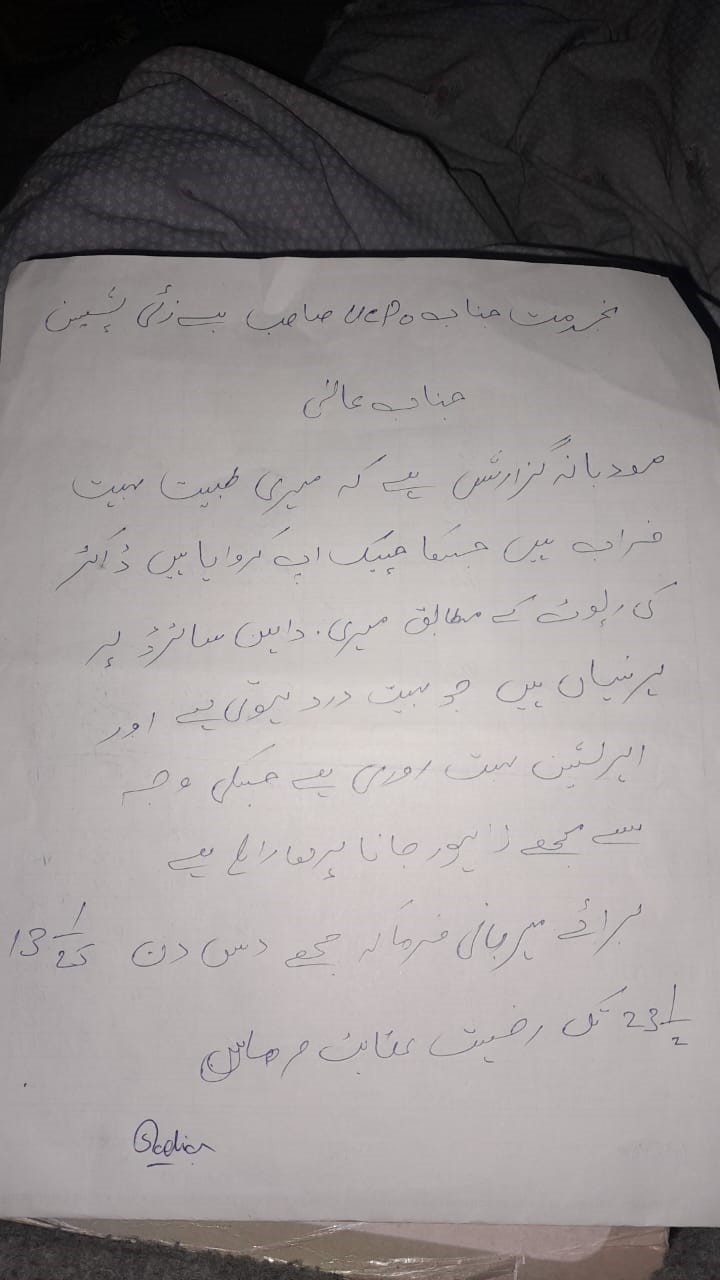 بخدمت جناب UCPO صاحب بے زئی پشین
جناب عالی
مودبانہ گزارش ہے کہ میری طبیت بہت
خراب ہیں جسکا چیک اپ کروایا ہیں ڈاکٹر
کی رپوٹ کے مطابق میری دایین سائڑڈ پر
ہرنیاں ہیں جو بہت درد ہوتی ہے اور
اپریشین بہت ضروری ہے جسکی وجہ
سے مجھے لاہور جانا پڑھ رہا ہے
برائے مہربانی فرماکہ مجھے دس دن 13 1/25
23 1/2 تک رخصت عنایت فرماہیں
Sadia